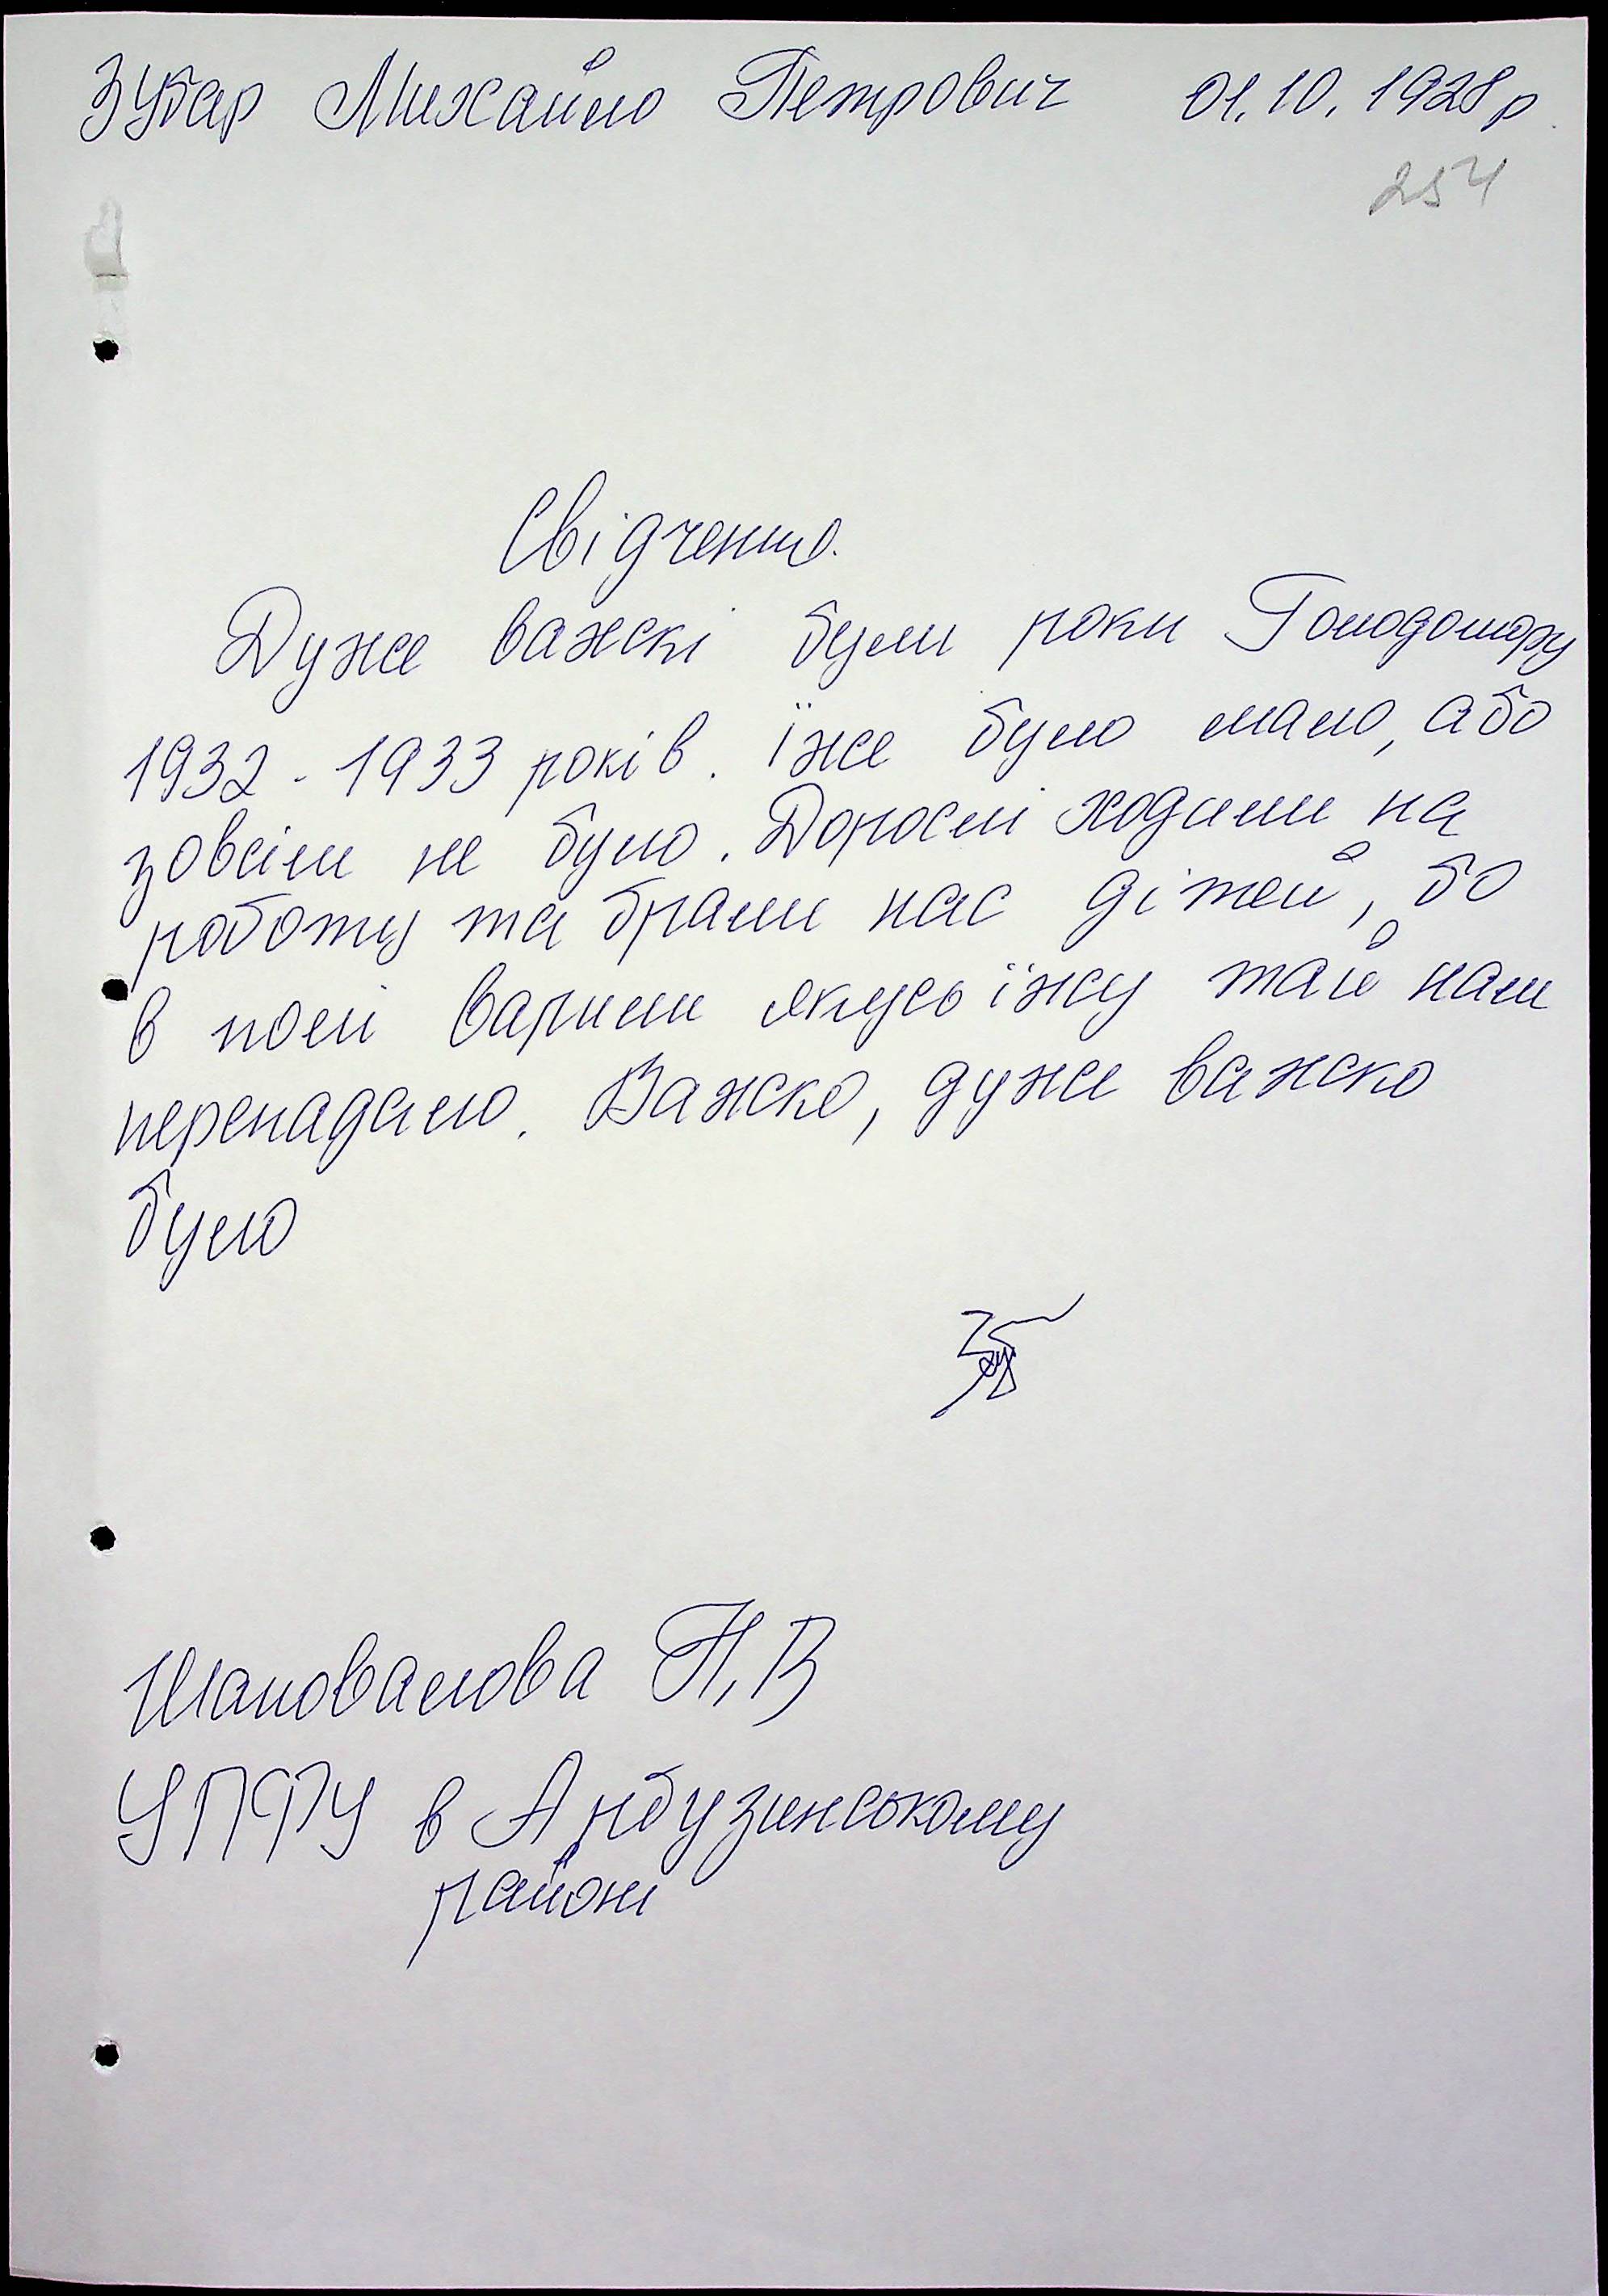 Зубар Михайло Петрович 01.10.1928р.
254
Свідченню.
Дуже важкі були роки Голодомору
1932 - 1933 років. Їже було мало, або
зовсім не було. Дорослі ходили на
роботу та брали нас дітей, бо
в полі варили якусь їжу тай нам
перепадало. Важко, дуже важко
було
Шаповалова Н.В
УПФУ в Арбузинському
районі